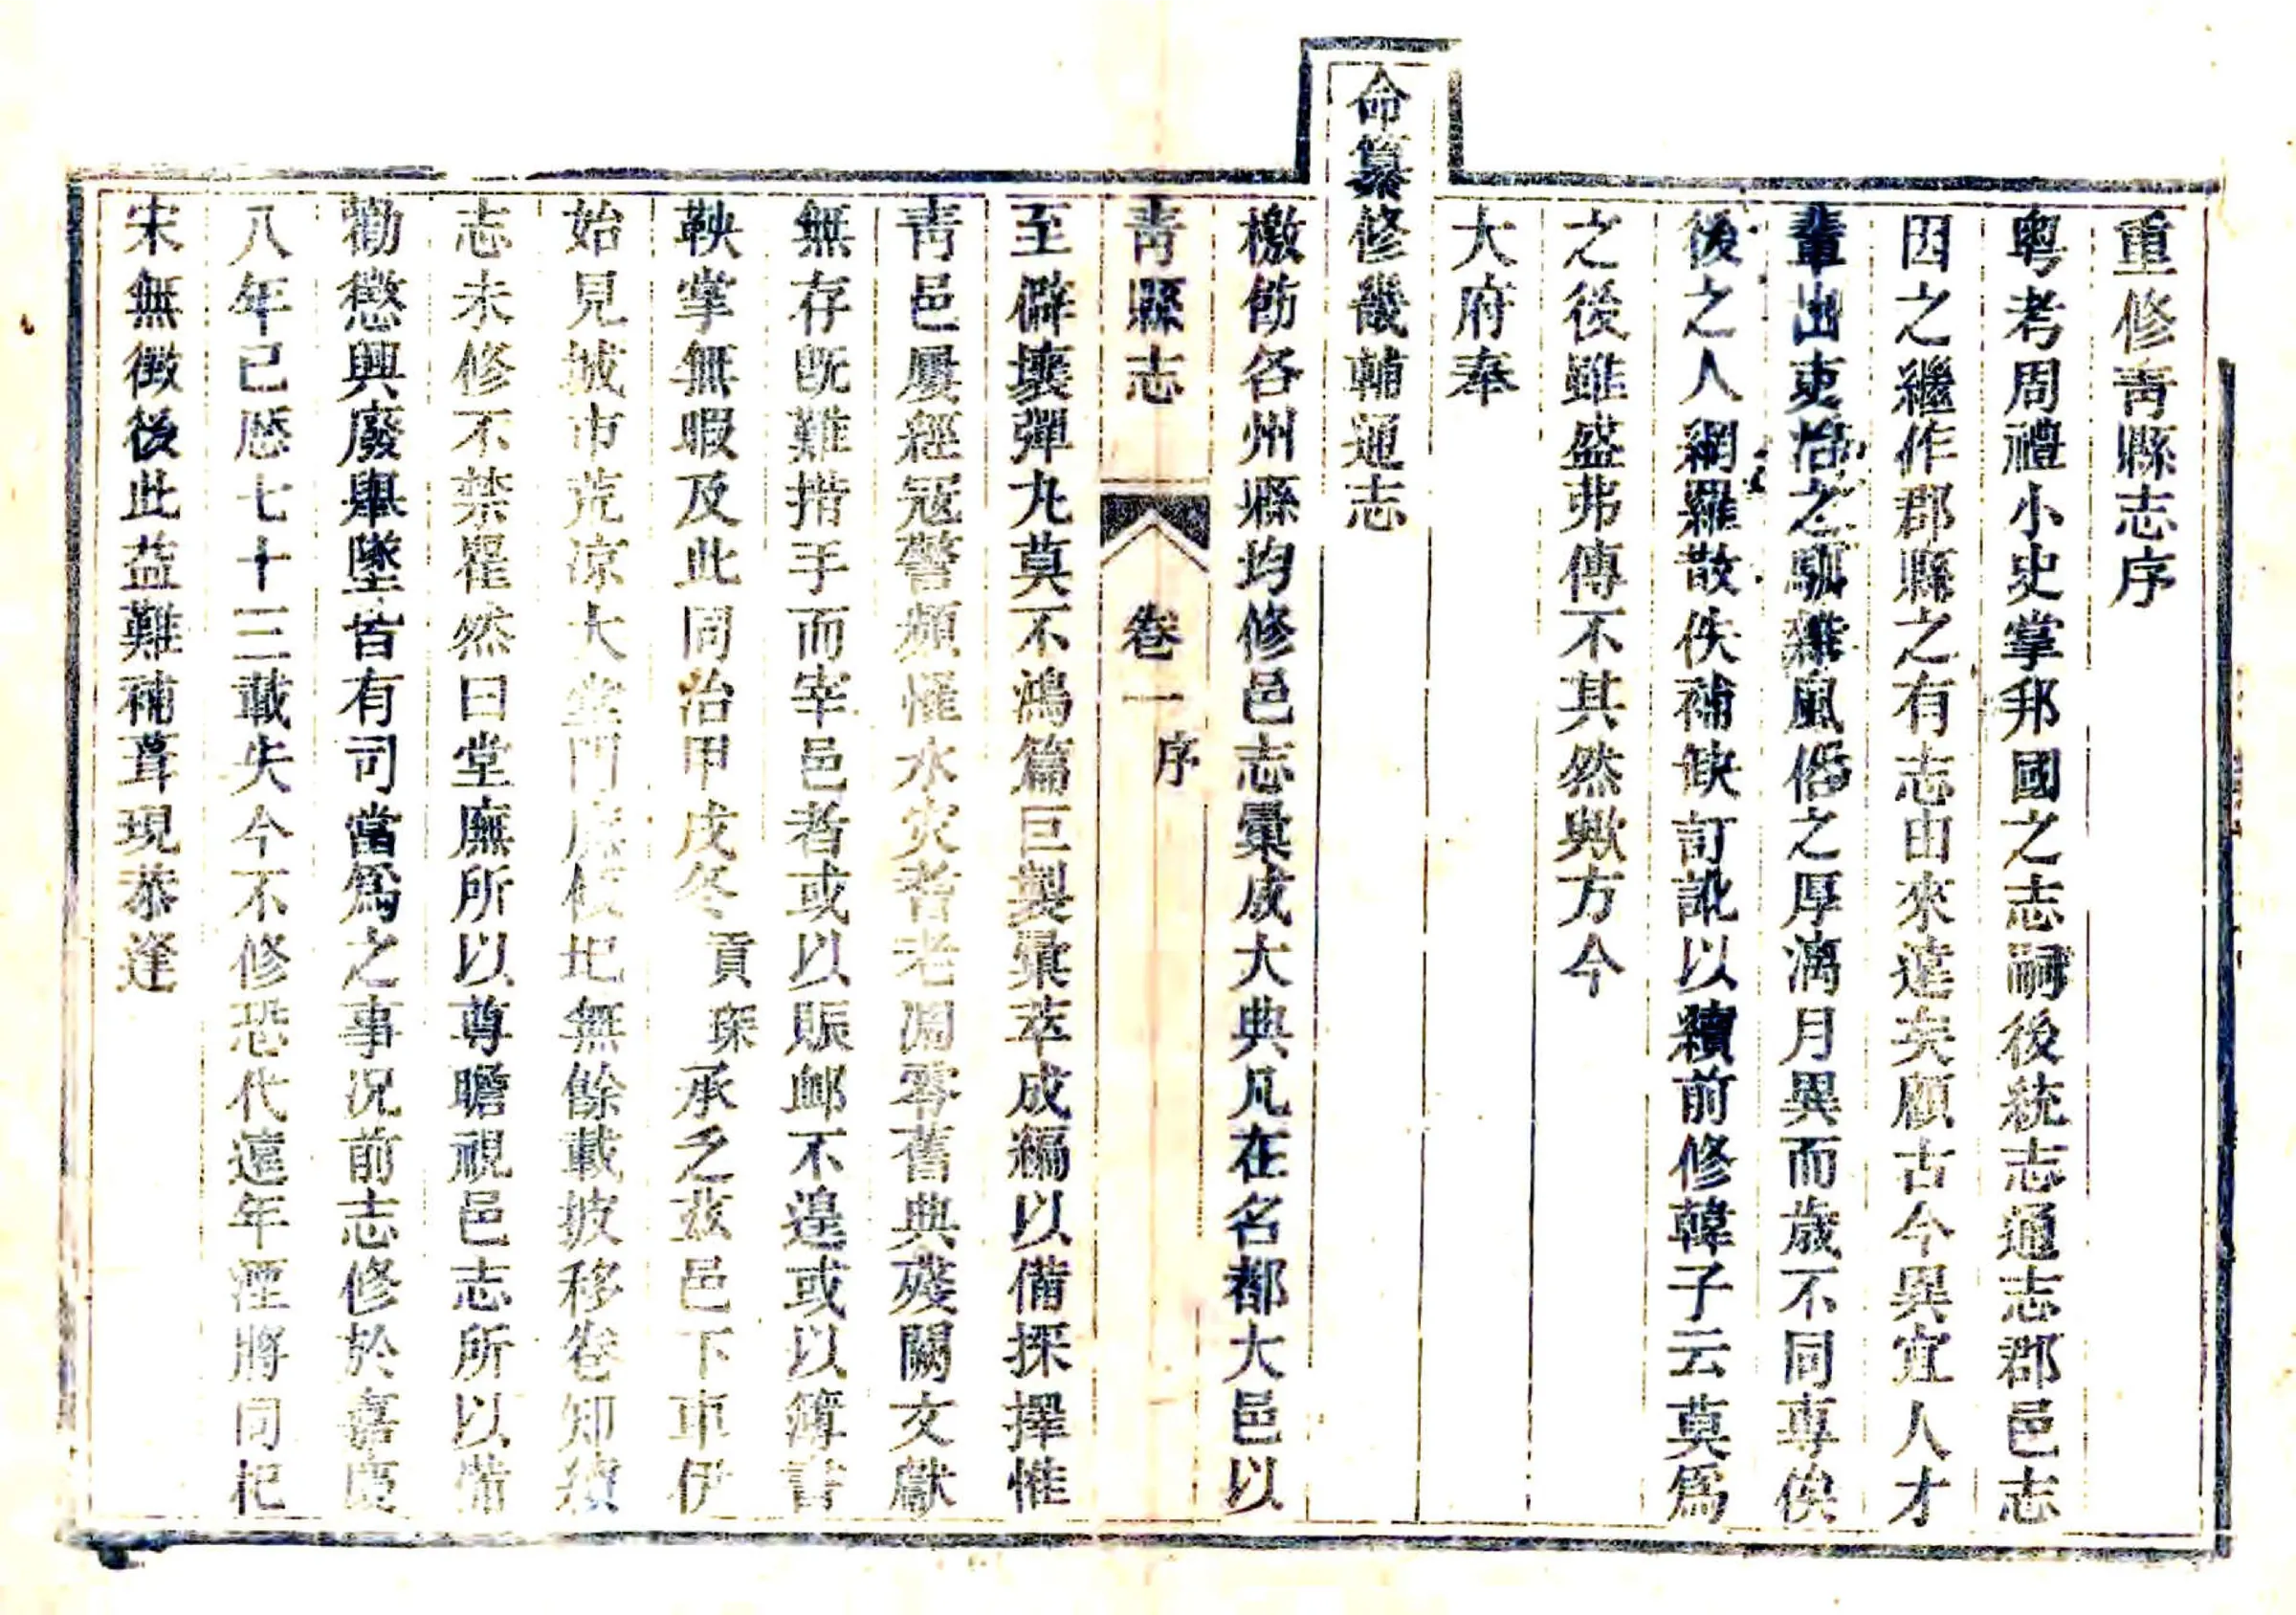 重修青縣志序
粵考周禮小史掌邦國之志嗣後統志通志郡邑志
因之繼作郡縣之有志由來遠矣顧古今異宜人才
輩出吏治之馴雜風俗之厚漓月異而歲不同專俟
後之人網羅散佚補缺訂訛以續前修韓子云莫爲
之後雖盛弗傳不其然歟方今
大府奉
命纂修畿輔通志
檄飭各州縣均修邑志彙成大典凡在名都大邑以
青縣志 卷一 序
至僻壤彈丸莫不鴻篇巨製彙萃成編以備採擇惟
青邑屢經冦警頻罹水灾耆老凋零舊典殘闕文獻
無存旣難措手而宰邑者或以賑邮不遑或以簿書
鞅掌無暇及此同治甲戌冬貢琛承乏茲邑下車伊
始見城市荒凉大堂門廡傾圮無餘載披移卷知續
志未修不禁瞿然曰堂廡所以尊瞻視邑志所以備
勸懲興廢舉墜皆有司當爲之事况前志修於嘉慶
八年已歷七十三載失今不修恐代遠年湮將同杞
宋無徵後此益難補葺現恭逢